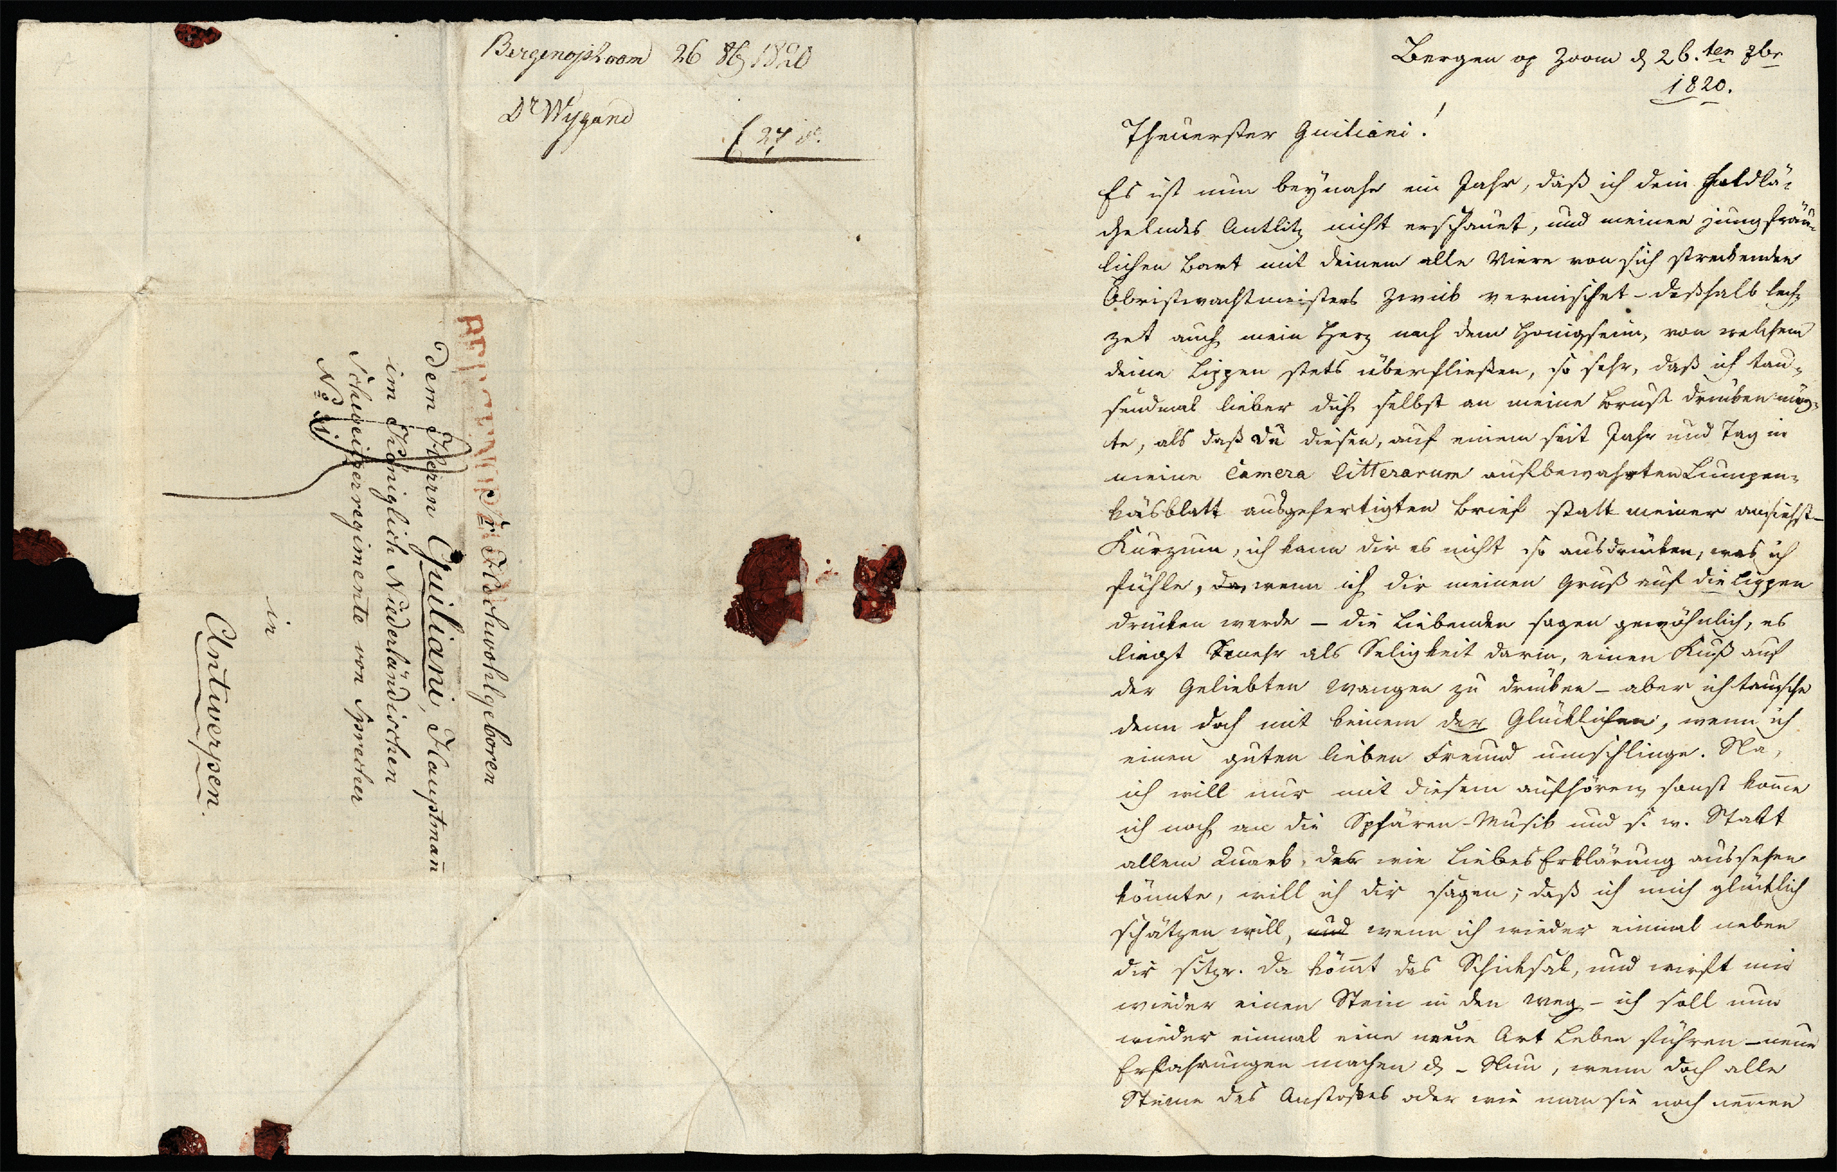 Bergenopzoom 26 8b 1820
Dr Wygand
f 27 s.
BERGEN OP ZOOM
Sr Hochwohlgeboren
dem Herrn Guiliani, Hauptmañ
im Königlich Niederländischen
Schweitzerregimente von Sprecher
No 31
in
Antwerpen.
Bergen op Zoom d 26.ten 8br
1820.
Theuerster Guiliani!
Es ist nun beynahe ein Jahr, daß ich dein holdlä-
chelndes Antlitz nicht erschauet, und meinen jungfräu-
lichen Bart mit deinem alle Viere von sich streckenden
Obristwachtmeisters Zwick vermischet – deßhalb lech-
zet auch mein Herz nach dem Honigseim, von welchem
deine Lippen stets überfließen, so sehr, daß ich tau-
sendmal lieber dich selbst an meine Brust drücken mög-
te, als daß Du diesen, auf einem seit Jahr und Tag in
meine Camera litterarum aufbewahrten Lumpen-
käsblatt ausgefertigten Brief statt meiner ansiehst –
Kurzum, ich kann dir es nicht so ausdrücken, was ich
fühle, da, wenn ich dir meinen Gruß auf die Lippen
drücken werde – die Liebenden sagen gewöhnlich, es
liegt mehr als Seligkeit darin, einen Kuß auf
der Geliebten Wangen zu drücken – aber ich tausche
denn doch mit keinem der Glücklichen, wenn ich
einen guten lieben Freund umschlinge. Na,
ich will nur mit diesem aufhören, sonst kom̃e
ich noch an die Sphären-Musik und s. w. Statt
allem Quark, der wie Liebes Erklärung aussehen
könnte, will ich dir sagen; daß ich mich glücklich
schätzen will, und wenn ich wieder einmal neben
dir sitze. Da köm̃t das Schicksal, und wirft mir
wieder einen Stein in den Weg – ich soll nun
wieder einmal eine neue Art Leben führen – neue
Erfahrungen machen d – Nun, wenn doch alle
Steine des Anstoßes oder wie man sie noch nennen